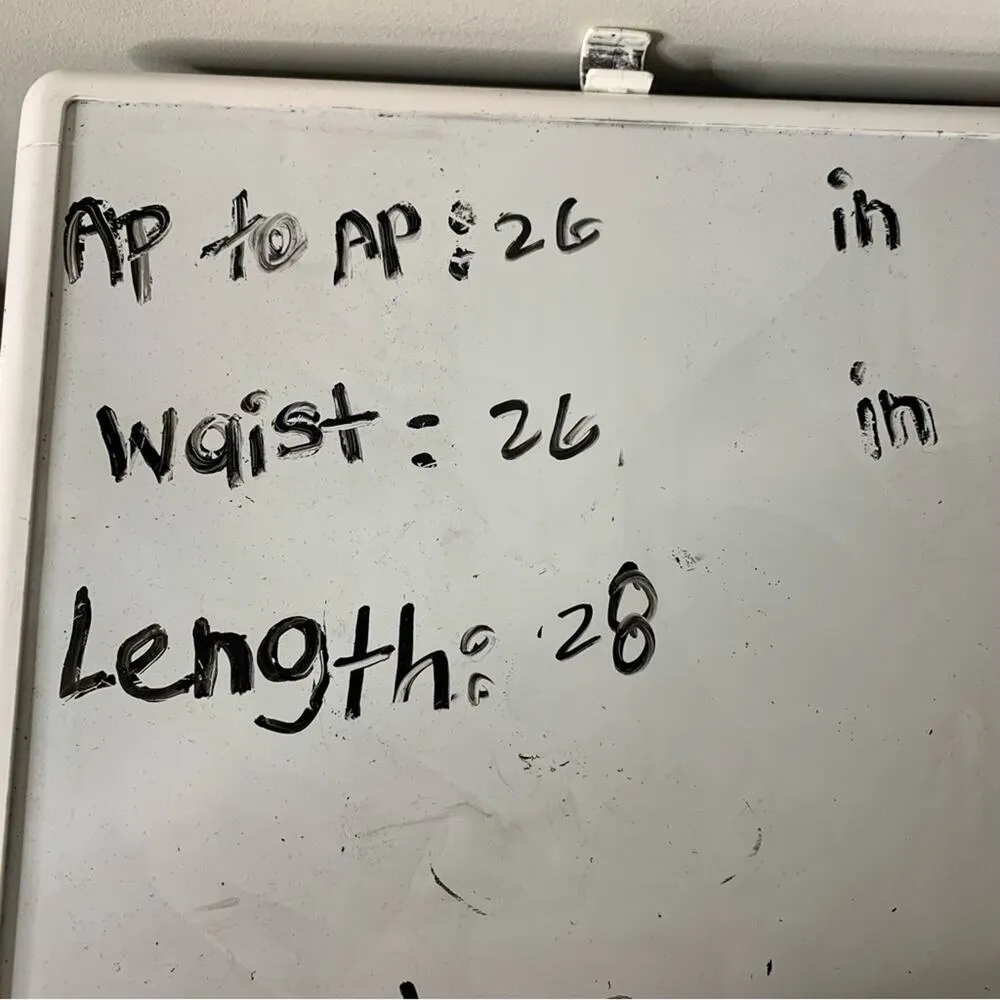 AP to AP: 26 in
Waist: 26 in
Length: 28